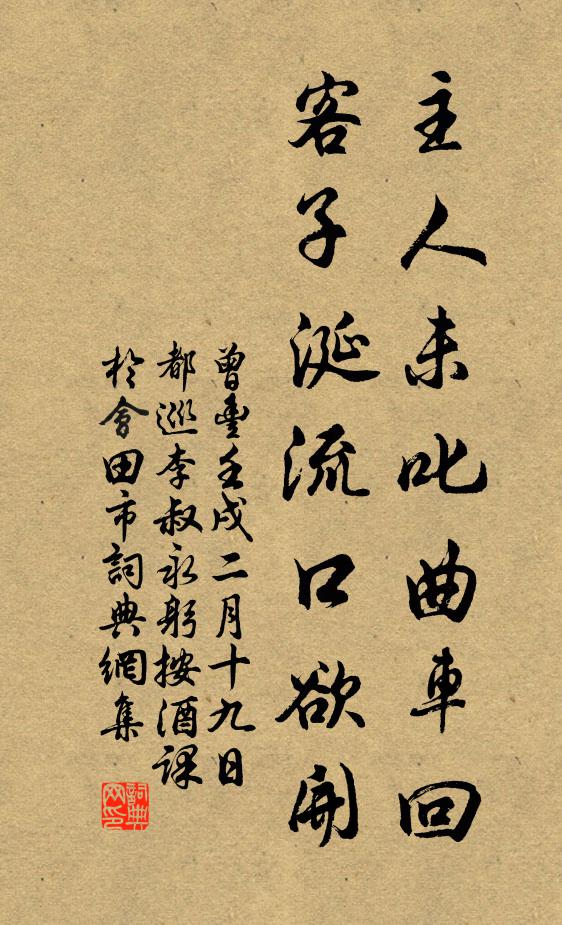 主人未叱曲車回
客子涎流口欲開
曾豊壬戌二月十九日
都巡李叔永躬按酒課
於會田市詞典網集
詞典网印